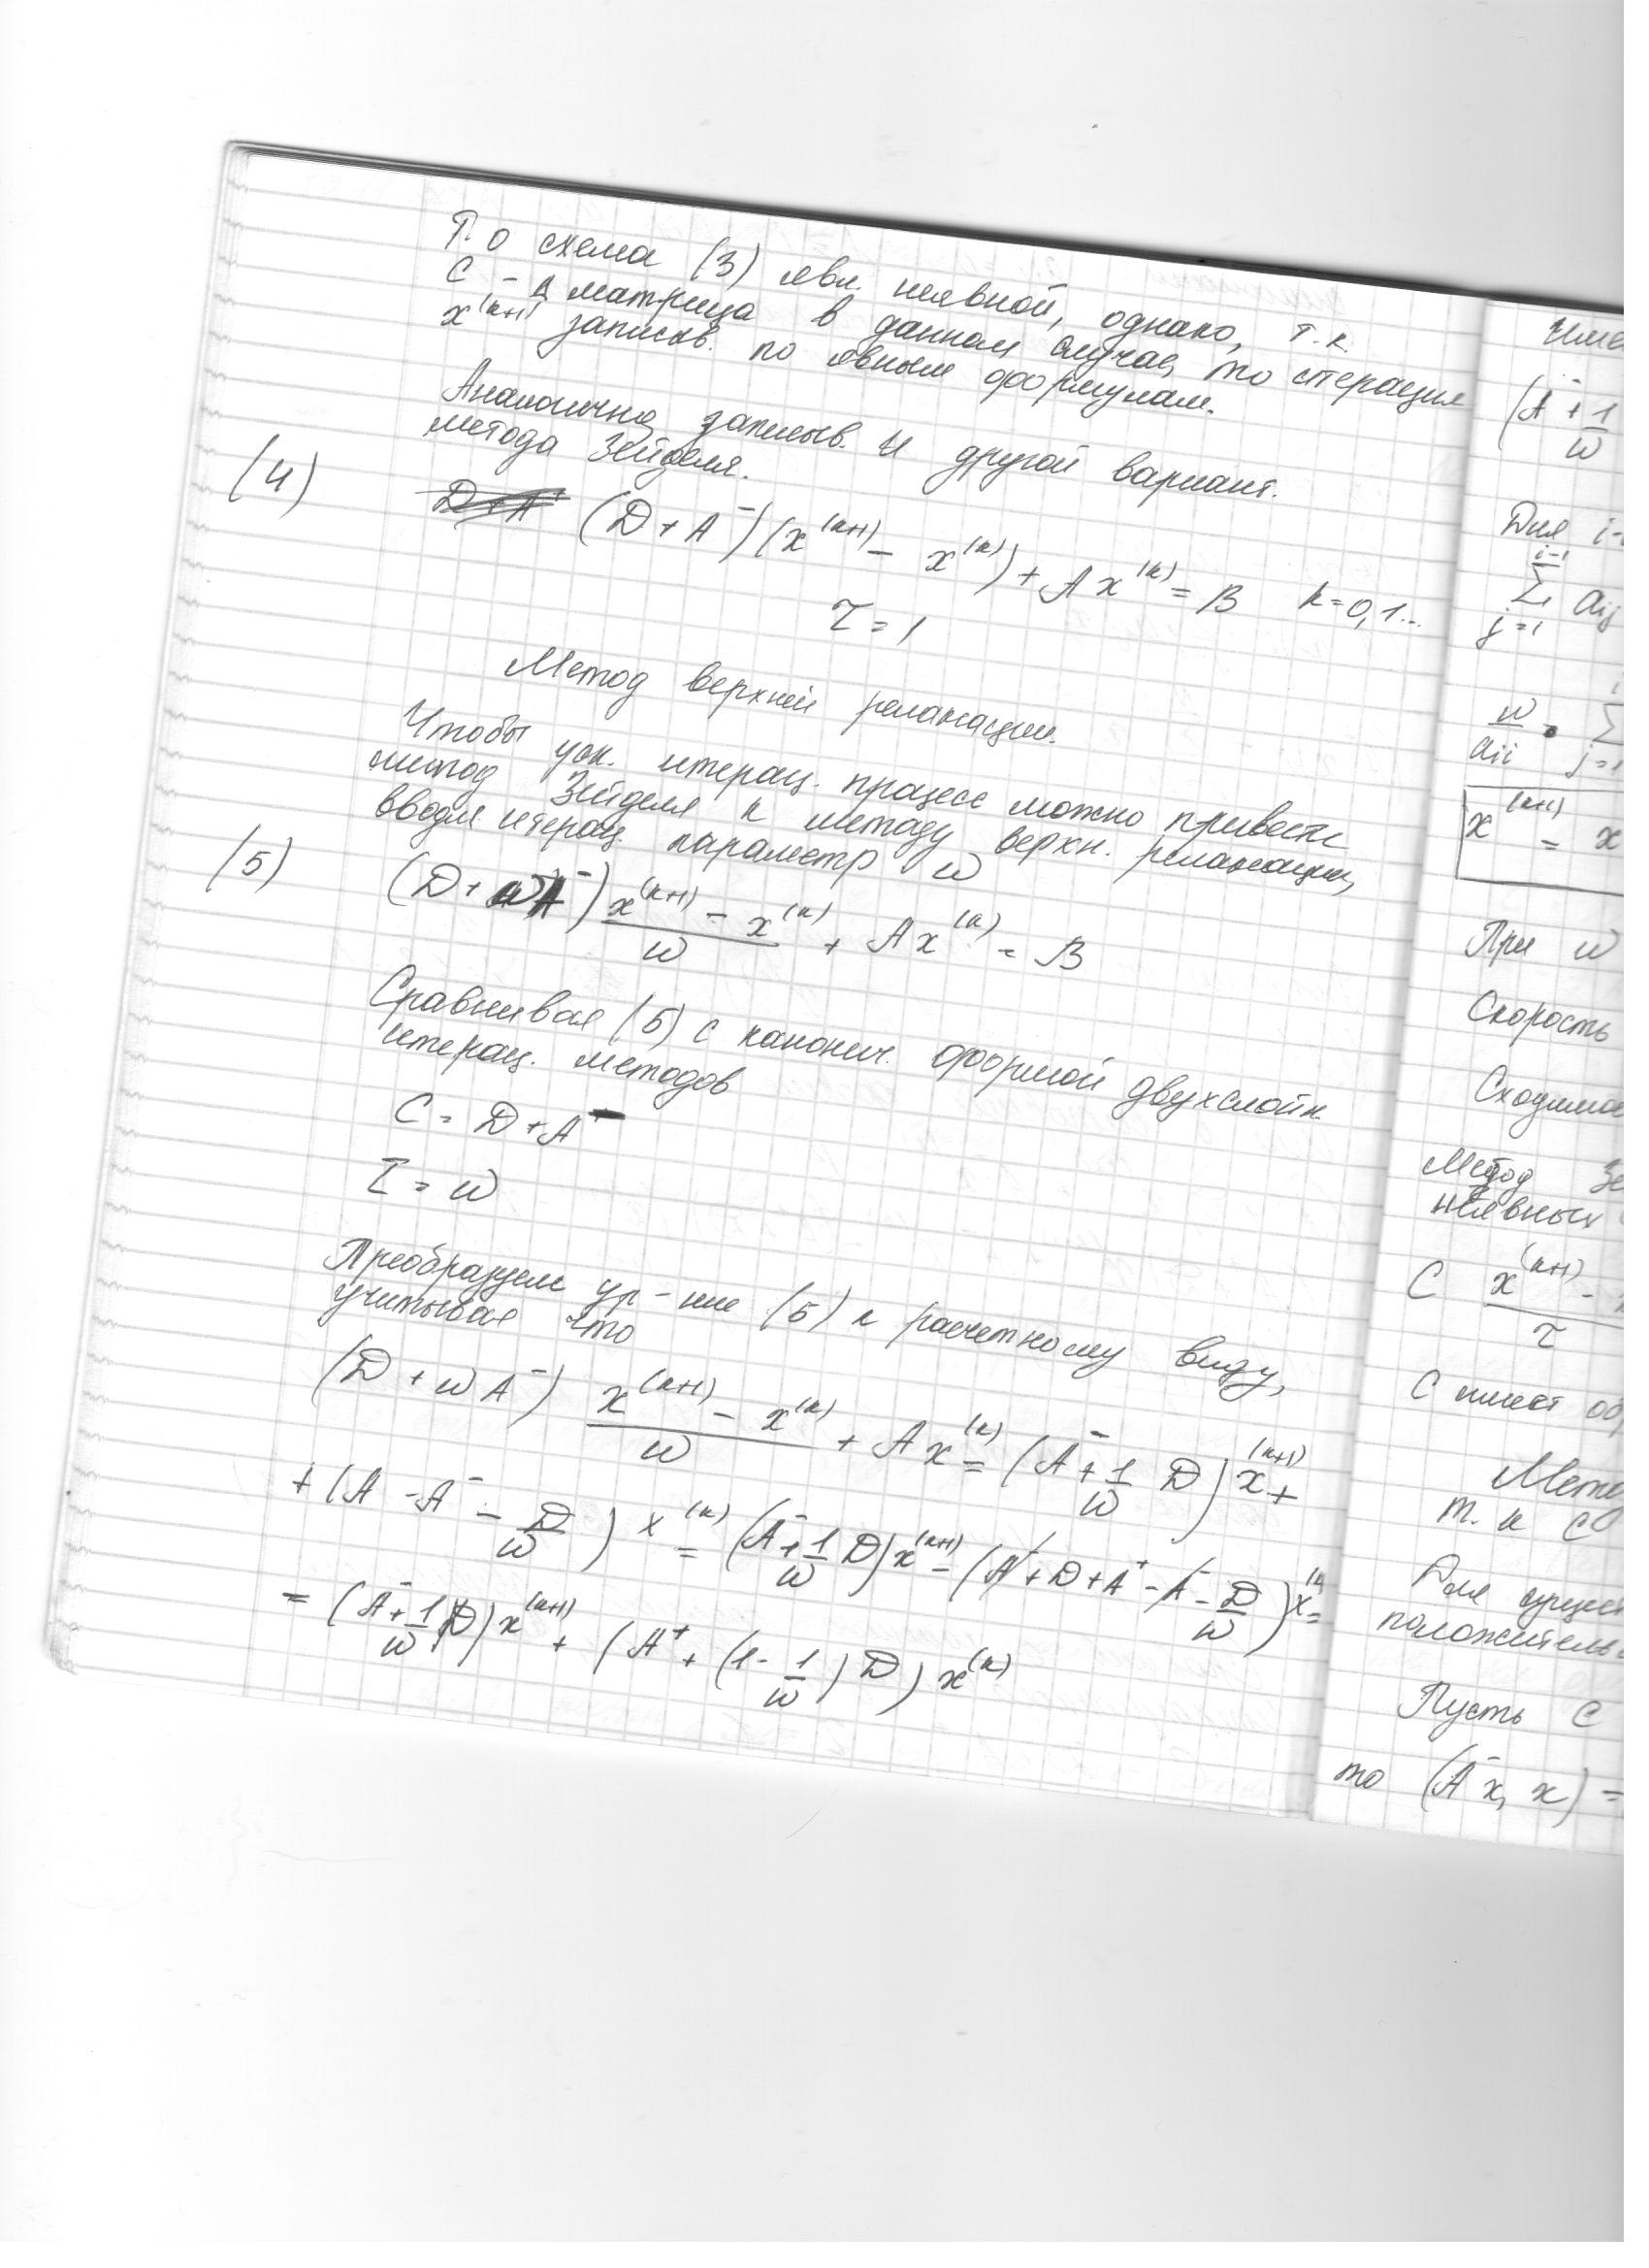 Т.о схема (3) явл. неявной, однако, т.к.
C - Δ матрица в данном случае, то итерация
x^(k+1) записыв. по явным формулам.
Аналогично записыв. и другой вариант.
метода Зейделя.
(4) (D + A^-)(x^(k+1) - x^(k)) + Ax^(k) = B k=0,1...
τ = 1
Метод верхней релаксации.
Чтобы уск. итерац. процесс можно привести
метод Зейделя к методу верхн. релаксации,
вводя итерац. параметр ω
(5) (D + ωA^-) (x^(k+1) - x^(k))/ω + Ax^(k) = B
Сравнивая (5) с канонич. формой двухслойн.
итерац. методов
C = D + A^-
τ = ω
Преобразуем ур-ние (5) к расчетному виду,
учитывая что
(D + ωA^-) (x^(k+1) - x^(k))/ω + Ax^(k) = (A^- + 1/ω D) x^(k+1) +
+ (A - A^- - D/ω) x^(k) = (A^- + 1/ω D) x^(k+1) - (A^- + D + A^+ - A^- - D/ω) x^(k) =
= (A^- + 1/ω D) x^(k+1) + (A^+ + (1 - 1/ω) D) x^(k)
(A^- + 1/ω
Для i-
∑ j=1 i-1 aij
ω/aii ∑ j=1
x^(k+1) = x
При ω
Скорость
Метод
неявных
C x^(k+1) - / τ
C имеет
т.к C
Для
Пусть C
то (A^- x, x) =